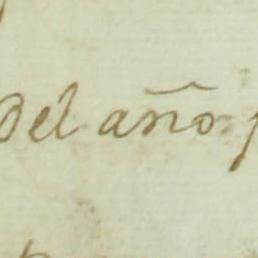 Del año